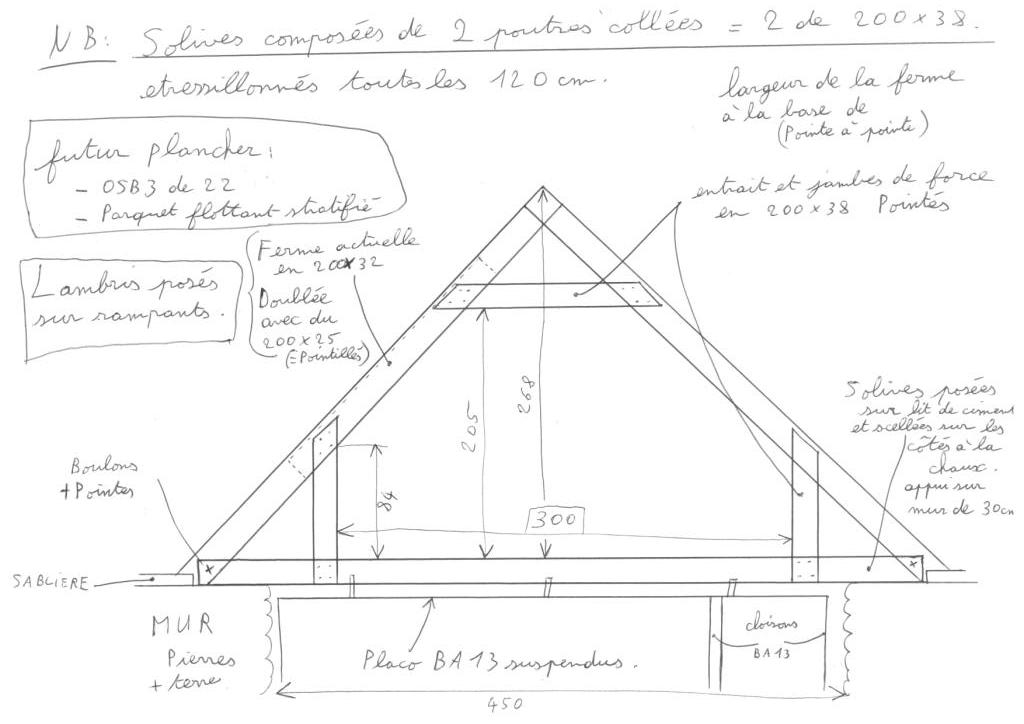 NB: Solives composées de 2 poutres collées = 2 de 200 x 38.
etressillonnés toutes les 120 cm.
largeur de la ferme
à la base de
(Pointe à pointe)
futur plancher:
- OSB3 de 22
- Parquet flottant stratifié
entrait et jambes de force
en 200 x 38 Pointés
Lambris posés
sur rampants.
Ferme actuelle
en 200 x 32
Doublée
avec du
200 x 25
(= Pointillés)
268
205
84
300
Solives posées
sur lit de ciment
et scellées sur les
côtés à la
chaux.
appui sur
mur de 30cm
Boulons
+ Pointes
SABLIERE
MUR
Pierres
+ terre
Placo BA 13 suspendus.
cloisons
BA13
450